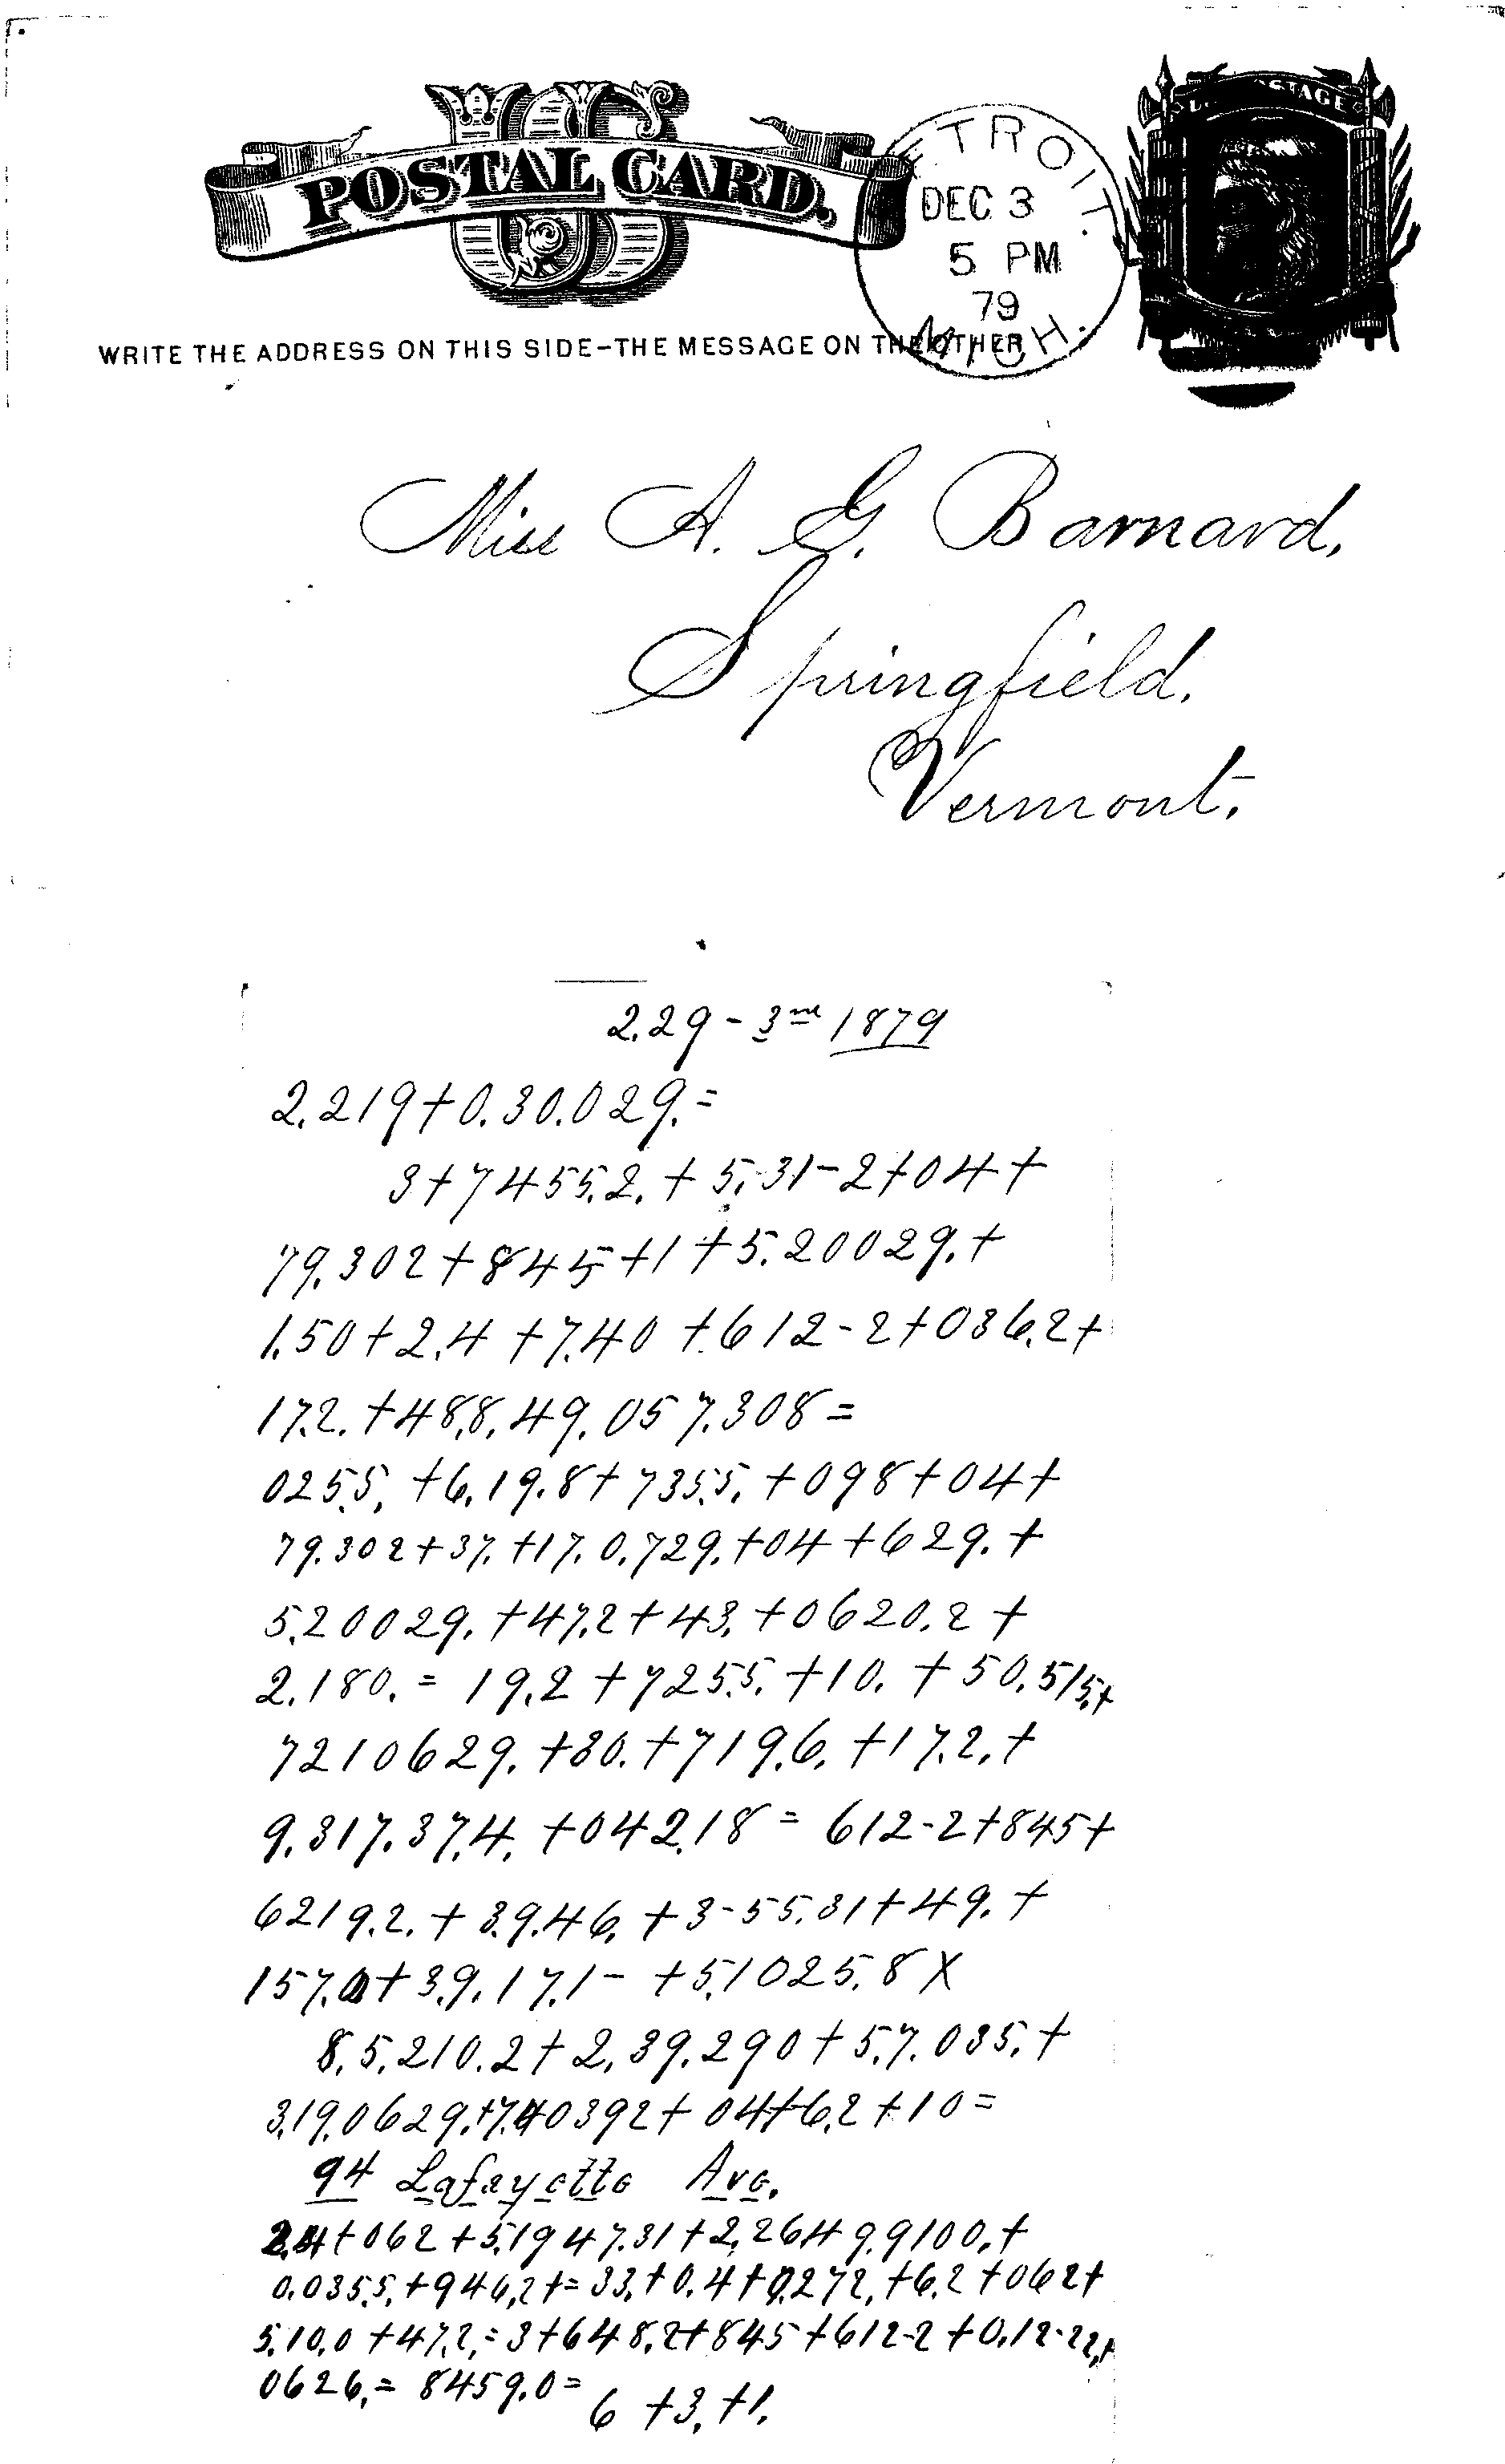 US
POSTAL CARD.
DETROIT. MICH.
DEC 3
5 PM
79
POSTAGE
WRITE THE ADDRESS ON THIS SIDE-THE MESSAGE ON THE OTHER
Miss A. G. Barnard,
Springfield.
Vermont.
2.29 - 3rd 1879
2.219+0.30.029.=
3+7455.2.+5.31-2+04+
79.302+845+1+5.20029.+
1.50+2.4+7.40+612-2+036.2+
17.2.+48.8.49.057.308=
025.5.+6.19.8+735.5.+098+04+
79.302+37.+17.0.729.+04+629.+
5.20029.+47.2+43.+0620.2+
2.180.= 19.2+725.5.+10.+50.515.+
7210629.+30.+719.6.+17.2.+
9.317.37.4.+042.18= 612-2+845+
6219.2.+39.46.+3-55.31+49.+
157.0+39.17.1-+5.1025.8 X
8.5.210.2+2.39.290+5.7.035.+
3.19.0629.+7.40392+04+6.2+10=
94 Lafayette Ave.
2.4+062+5.1947.31+2.26499.9100.+
0.035.5.+946.2+=33.+0.4+0.272.+6.2+062+
5.10.0+47.2.=3+648.2+845+612-2+0.12-22.+
0626.= 8459.0=
6+3.+1.